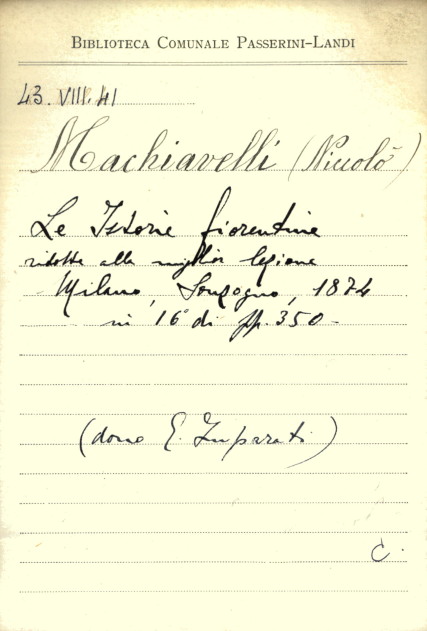 BIBLIOTECA COMUNALE PASSERINI-LANDI
43. VIII. 41
Machiavelli (Niccolò)
Le Istorie fiorentine
ridotte alla miglior lezione
Milano, Sonzogno, 1874
in 16° di pp. 350 -
(dono E. Imparati)
C.